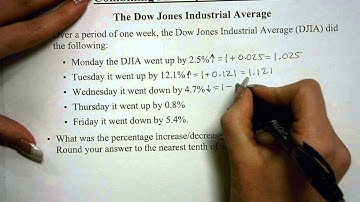 The Dow Jones Industrial Average
Over a period of one week, the Dow Jones Industrial Average (DJIA) did
the following:
• Monday the DJIA went up by 2.5%↑ = 1 + 0.025 = 1.025
• Tuesday it went up by 12.1%↑ = 1 + 0.121 = 1.121
• Wednesday it went down by 4.7%↓ = 1 -
• Thursday it went up by 0.8%
• Friday it went down by 5.4%.
• What was the percentage increase/decrease
Round your answer to the nearest tenth of a